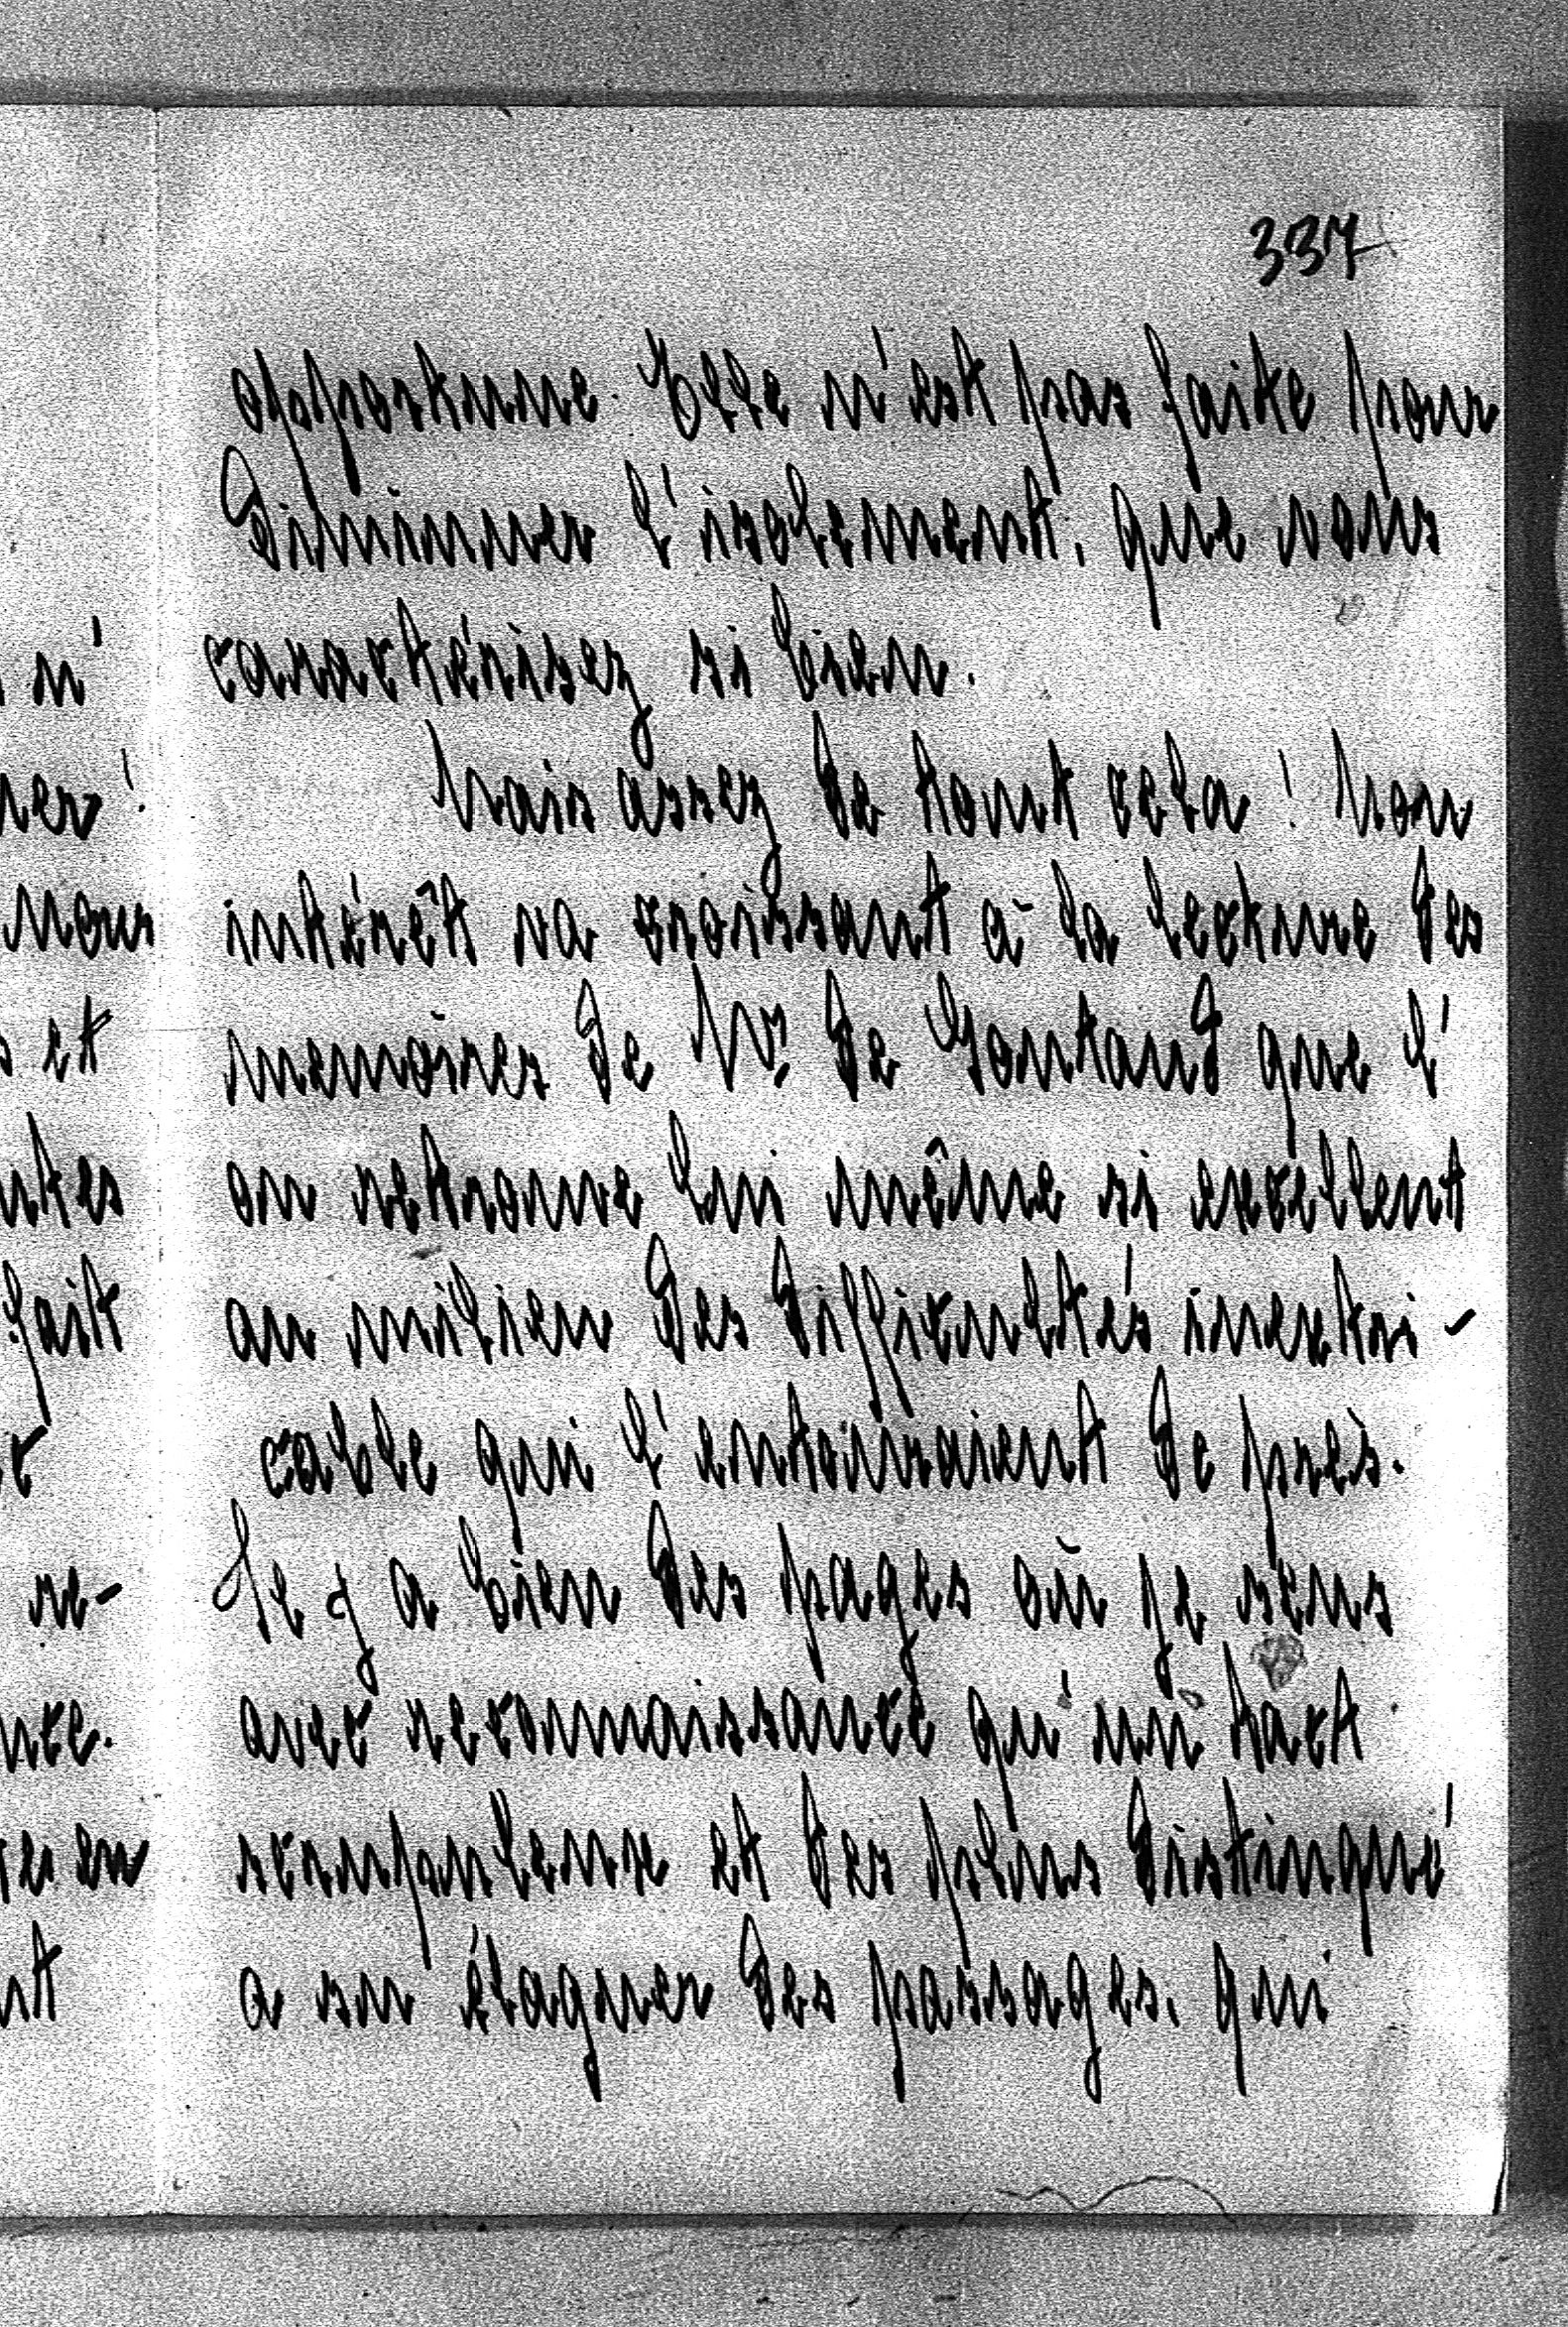 337
opportune. Elle n'est pas faite pour
diminuer l'isolement, que vous
caractérisez si bien.
Mais assez de tout cela! Mon
intérêt va croissant à la lecture des
memoires de Mr. de Gontaud que l'
on retrouve lui même si excellent
au milieu des difficultés inextri-
cable qui l'entouraient de près.
Il y a bien des pages où je sens
avec reconnaissance qu'un tact
scrupuleux et des plus distingué
a su élaguer des passages, qui
n'
ner!
Nous
et
ntes
fait
re-
nce.
en
nt